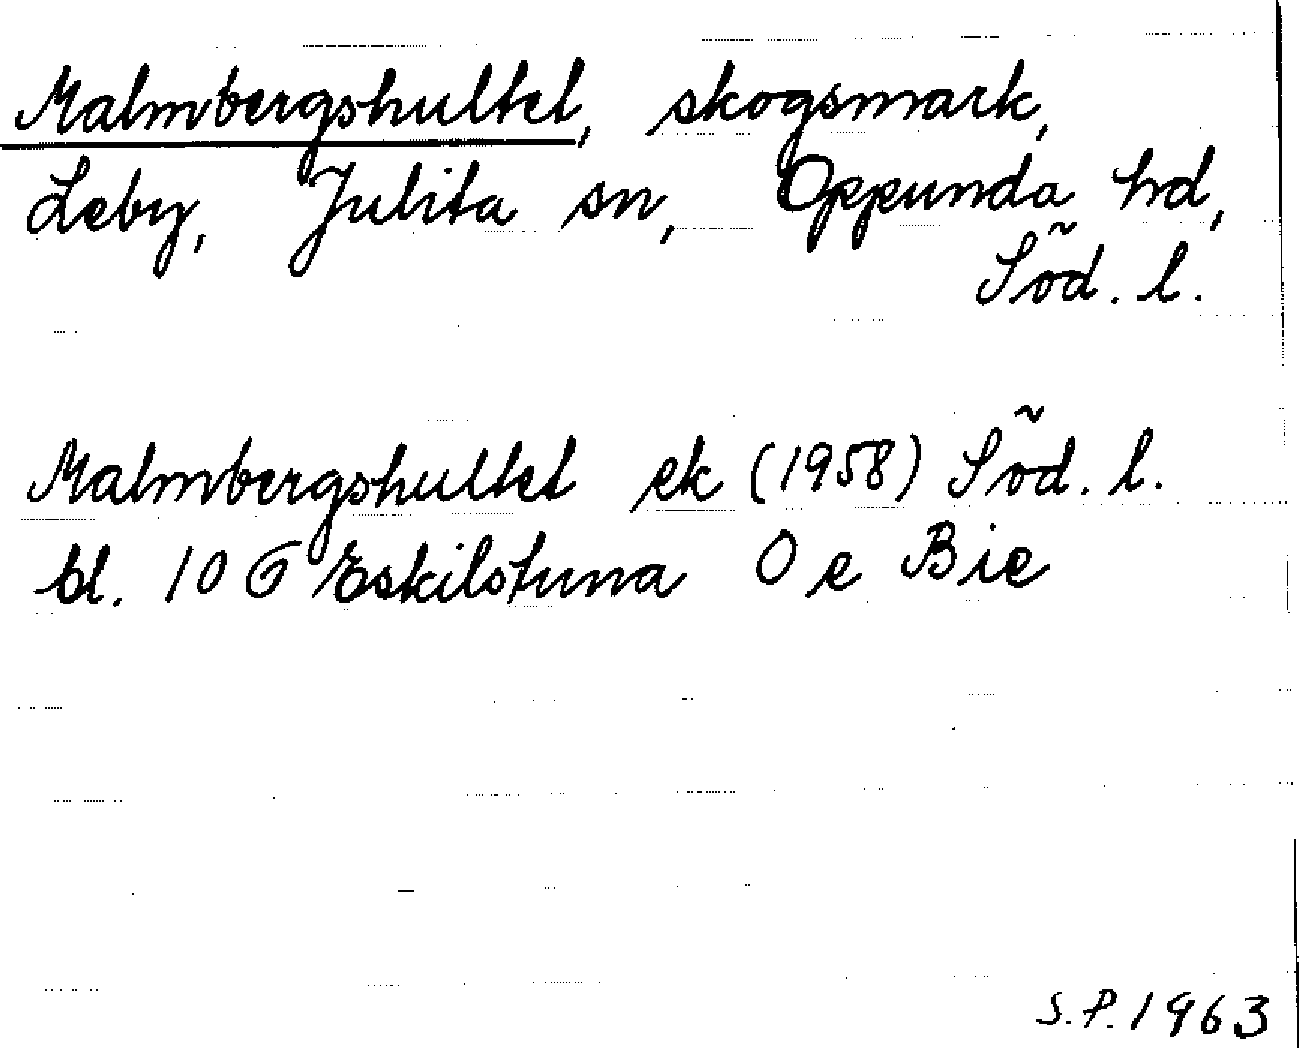 Malmbergshultet, skogsmark,
Leby, Julita sn, Oppunda hd,
Söd. l.
Malmbergshultet ek (1958) Söd. l.
bl. 10 G Eskilstuna O e Bie
S.P. 1963